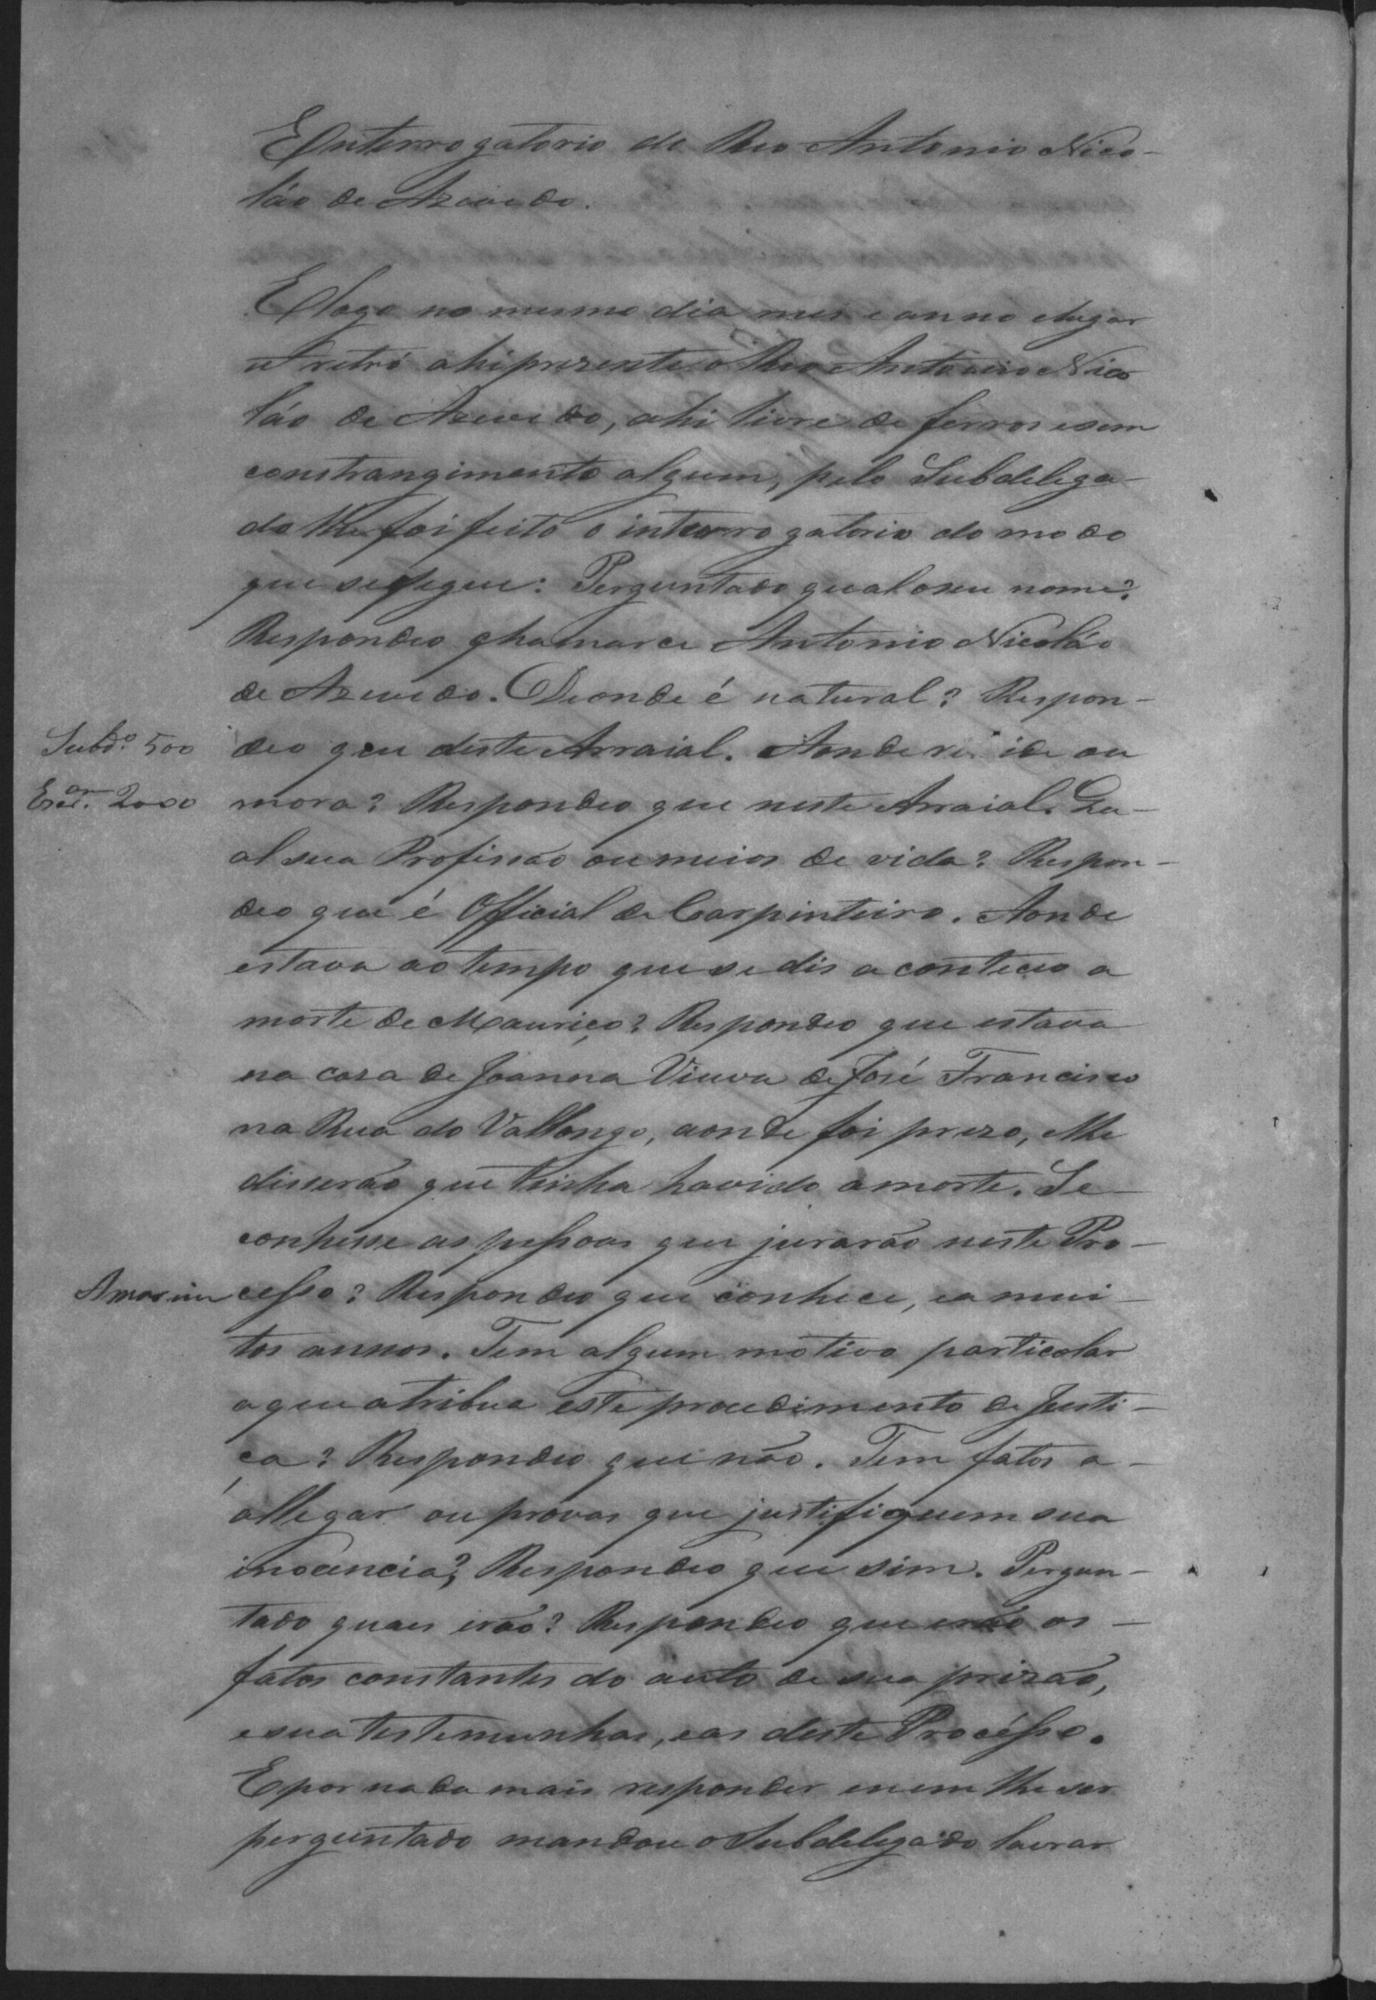 Enterrogatorio do Reo Antonio Nico-
láo de Azevedo.
E logo no mesmo dia mes e anno elugar
retró ahi prezente o Reo Antonio Nico
láo de Azevedo, ahi livre de ferros esem
constrangimento algum, pelo Subdelega-
do lhe foi feito o interrogatorio do modo
que se segue: Perguntado qual oseu nome?
Respondeo chamarce Antonio Nicoláo
de Azevedo. Deonde é natural? Respon-
deo que deste Arraial. Aonde reside ou
Subdo. 500
Ecran. 2000
mora? Respondeo que neste Arraial. Qu-
al sua Profissão ou meios de vida? Respon-
deo que é Official de Carpinteiro. Aonde
estava ao tempo que se dis aconteceo a
morte de Mauriço? Respondeo que estava
na caza de Joanna Viuva de José Francisco
na Rua do Vallongo, aonde foi prezo, elhe
disserão que tinha havido amorte. Se
conhesse as pessoas que jurarão neste Pro-
Amorim
cesso? Respondeo que conhece, ea mui-
tos annos. Tem algum motivo particolar
aque atribua este procedimento de Justi-
ça? Respondeo que não. Tem fatos a-
allegar ou provas que justifiquem sua
inocencia? Respondeo que sim. Pergun-
tado quaes erão? Respondeo que erão os
fatos constantes do auto de sua prizão,
esua testemunhas, eas deste Procésso.
Epor nada mais responder enem lhe ser
perguntado mandou o Subdelegado lavrar